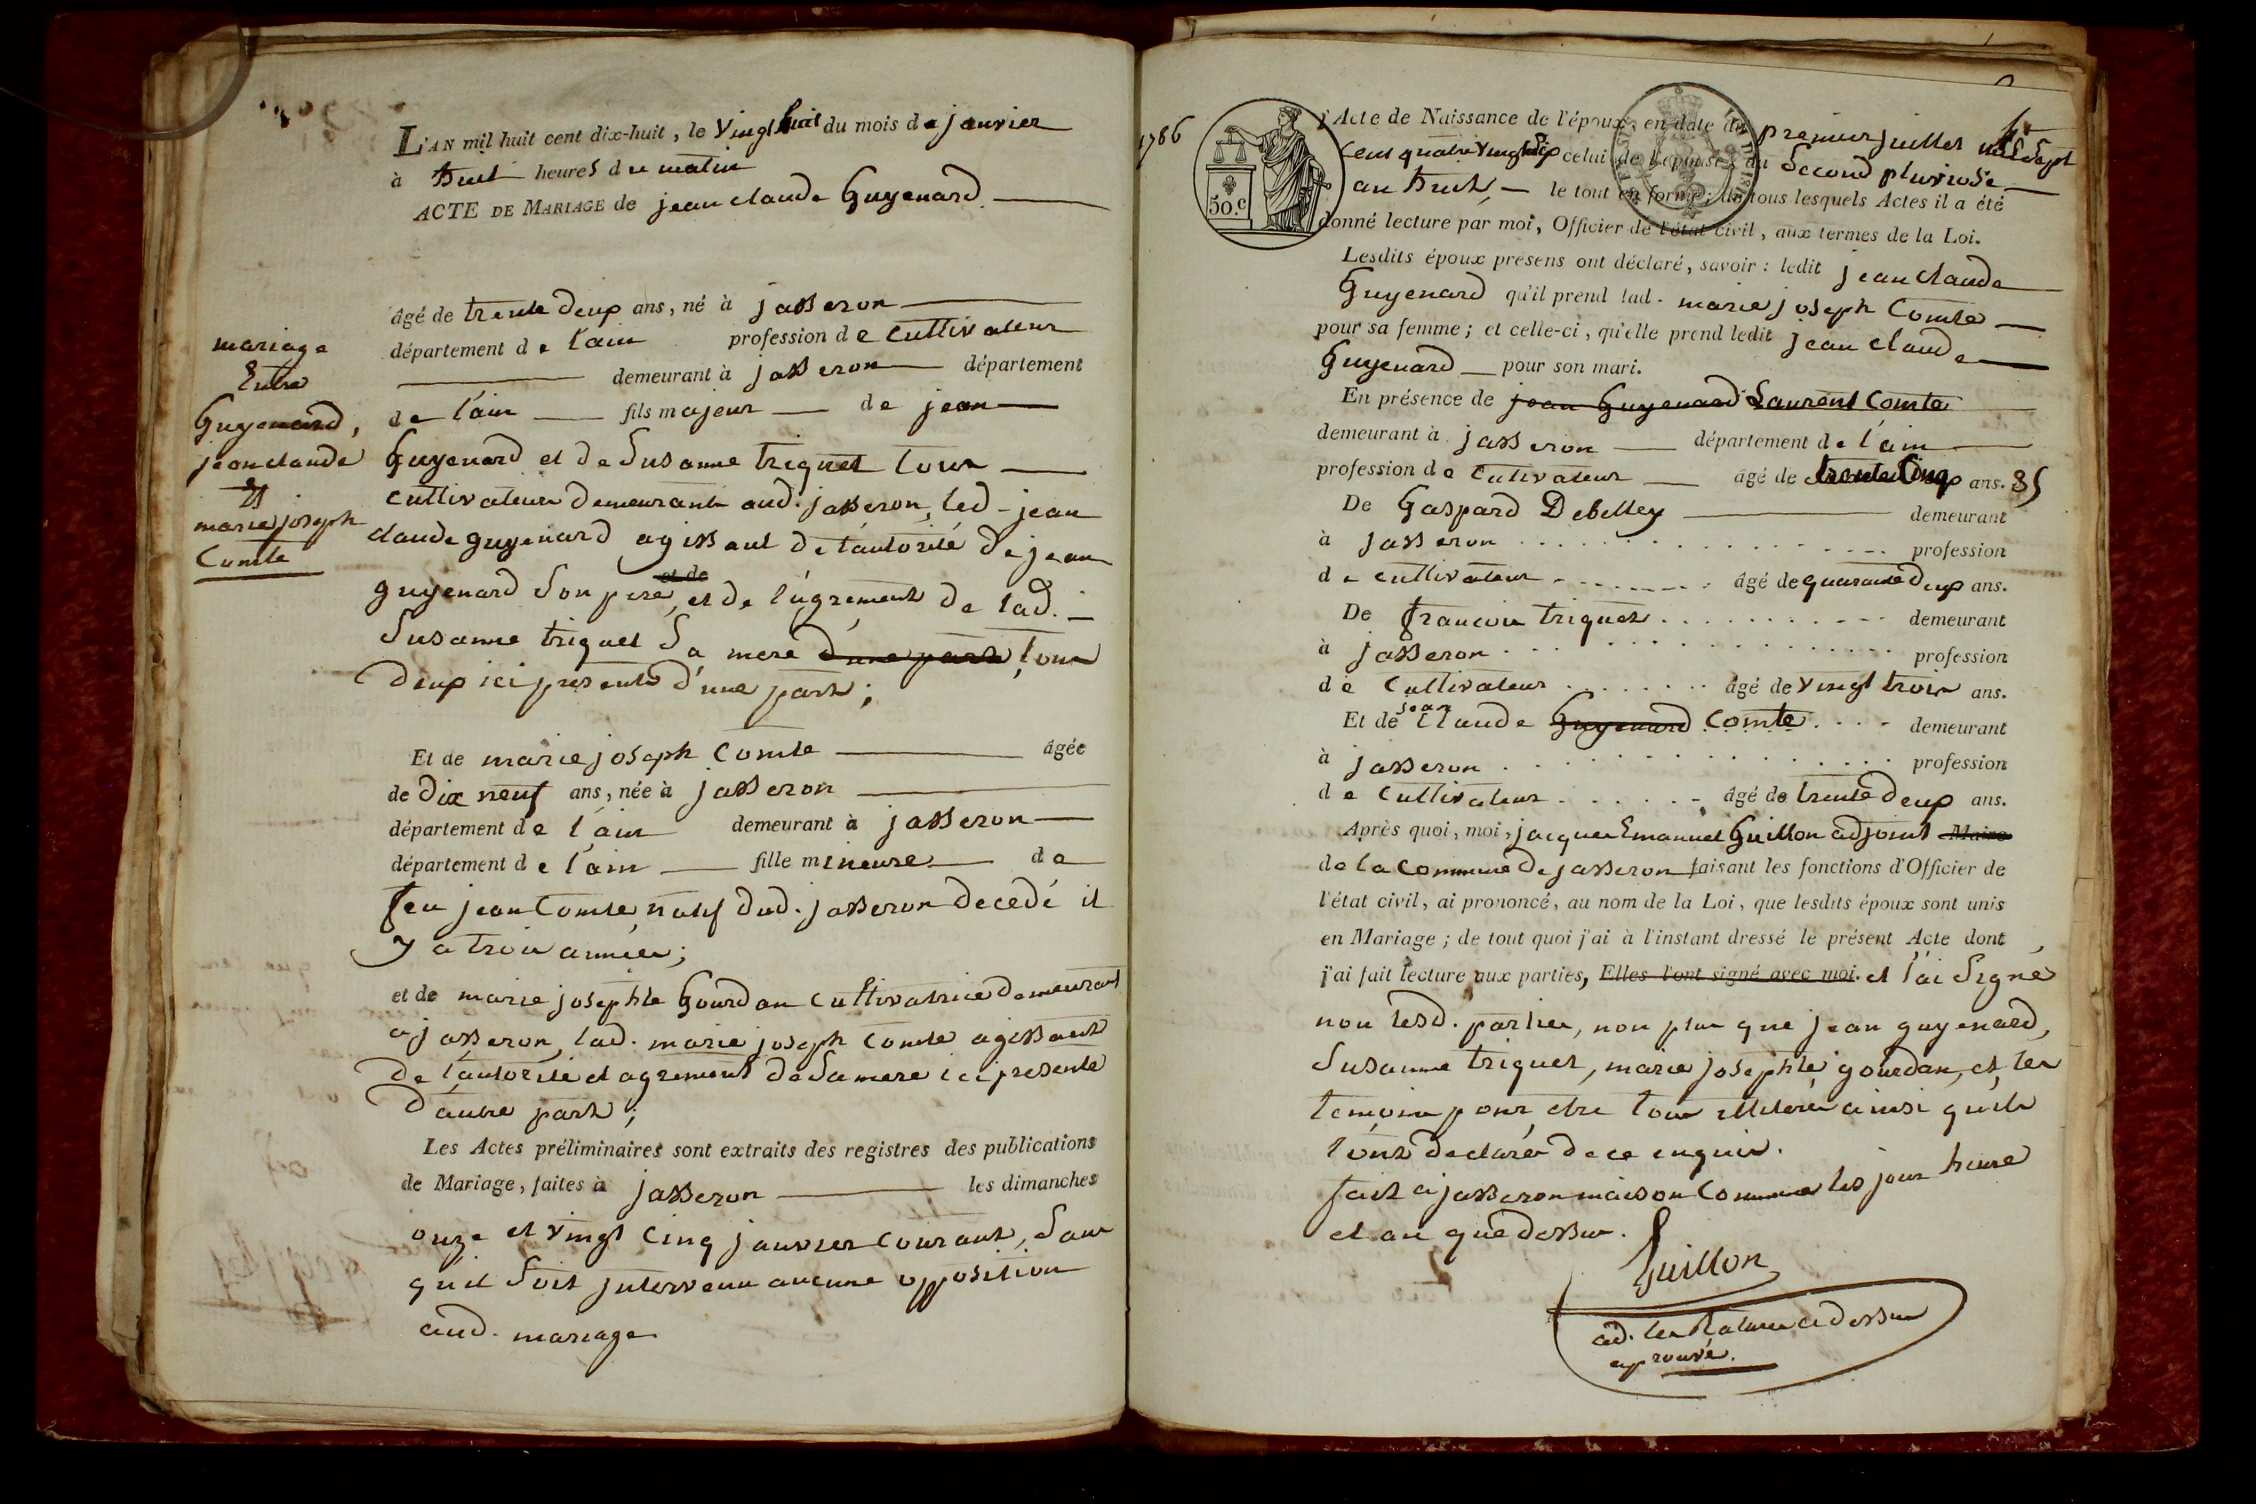 L'AN mil huit cent dix-huit, le Vingt huit du mois de janvier
à huit heures du matin
ACTE DE MARIAGE de jean claude Guyenard
âgé de trente deux ans, né à jasseron
département de l'ain profession de cultivateur
demeurant à jasseron département
de l'ain fils majeur de jean
Guyenard et de Susanne triquet tour
cultivateur demeurant aud. jasseron, led. jean
claude guyenard agissant de l'autorité de jean
guyenard Son pere, et de et de l'agrement de lad.
Susanne triquet Sa mere d'une part tour
deux ici presents d'une part;
mariage
Entre
Guyenard,
jean claude
Et
marie joseph
Comte
Et de marie joseph Comte âgée
de dix neuf ans, née à jasseron
département de l'ain demeurant à jasseron
département de l'ain fille mineure de
feu jean Comte natif dud. jasseron decedé il
y a troir année;
et de marie josephte Gourdan cultivatrice demeurant
a jasseron, lad. marie joseph Comte agissant
de l'autorité et agrement de Sa mere ici presente
d'autre part;
Les Actes préliminaires sont extraits des registres des publications
de Mariage, faites à jasseron les dimanches
onze et vingt cinq janvier courant, Sans
qu'il Soit intervenu aucune opposition
aud. mariage
1786
50.c
l'Acte de Naissance de l'époux, en date du premier juillet mil Sept
cent quatre vingt celui de l'épouse, du Second pluviose
an huit le tout en forme; de tous lesquels Actes il a été
donné lecture par moi, Officier de l'état civil, aux termes de la Loi.
Lesdits époux présens ont déclaré, savoir: ledit jean claude
Guyenard qu'il prend lad. marie joseph Comte
pour sa femme; et celle-ci, qu'elle prend ledit jean claude
Guyenard pour son mari.
En présence de jean Guyenard Laurent Comte
demeurant à jasseron département de l'ain
profession de Cultivateur âgé de trente Cinq ans. 35
De Gaspard Debelley demeurant
à jasseron profession
de cultivateur âgé de quarante deux ans.
De francoir triquet demeurant
à jasseron profession
de Cultivateur âgé de vingt troir ans.
Et de jean Claude Guyenard Comte demeurant
à jasseron profession
de Cultivateur âgé de trente deux ans.
Après quoi, moi, jacquer Emanuel Guillon adjoint Maire
de la commune de jasseron faisant les fonctions d'Officier de
l'état civil, ai prononcé, au nom de la Loi, que lesdits époux sont unis
en Mariage; de tout quoi j'ai à l'instant dressé le présent Acte dont
j'ai fait lecture aux parties, Elles l'ont signé avec moi. et l'ai Signé
non lesd. partier, non plur que jean guyenard,
Susanne triquet, marie josephte gourdan, et ler
temoin pour etre tour illiteré ainsi qu'ilr
l'ont declaré de ce enquir.
fait a jasseron maison Commune les jour heure
et an que dessur.
Guillon
ad. ler Ratures ci dessur
approuvé.